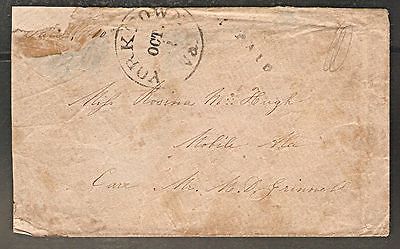 YORKTOWN VA
OCT
PAID
10
Miss Rosina McHugh
Mobile Ala
Care Mr. M. D. Grinnell